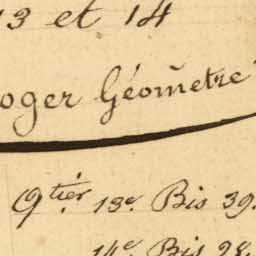 13 et 14
oger Géom̃etre
Qtiér 13e. Bis 39.
14e. Bis 28.